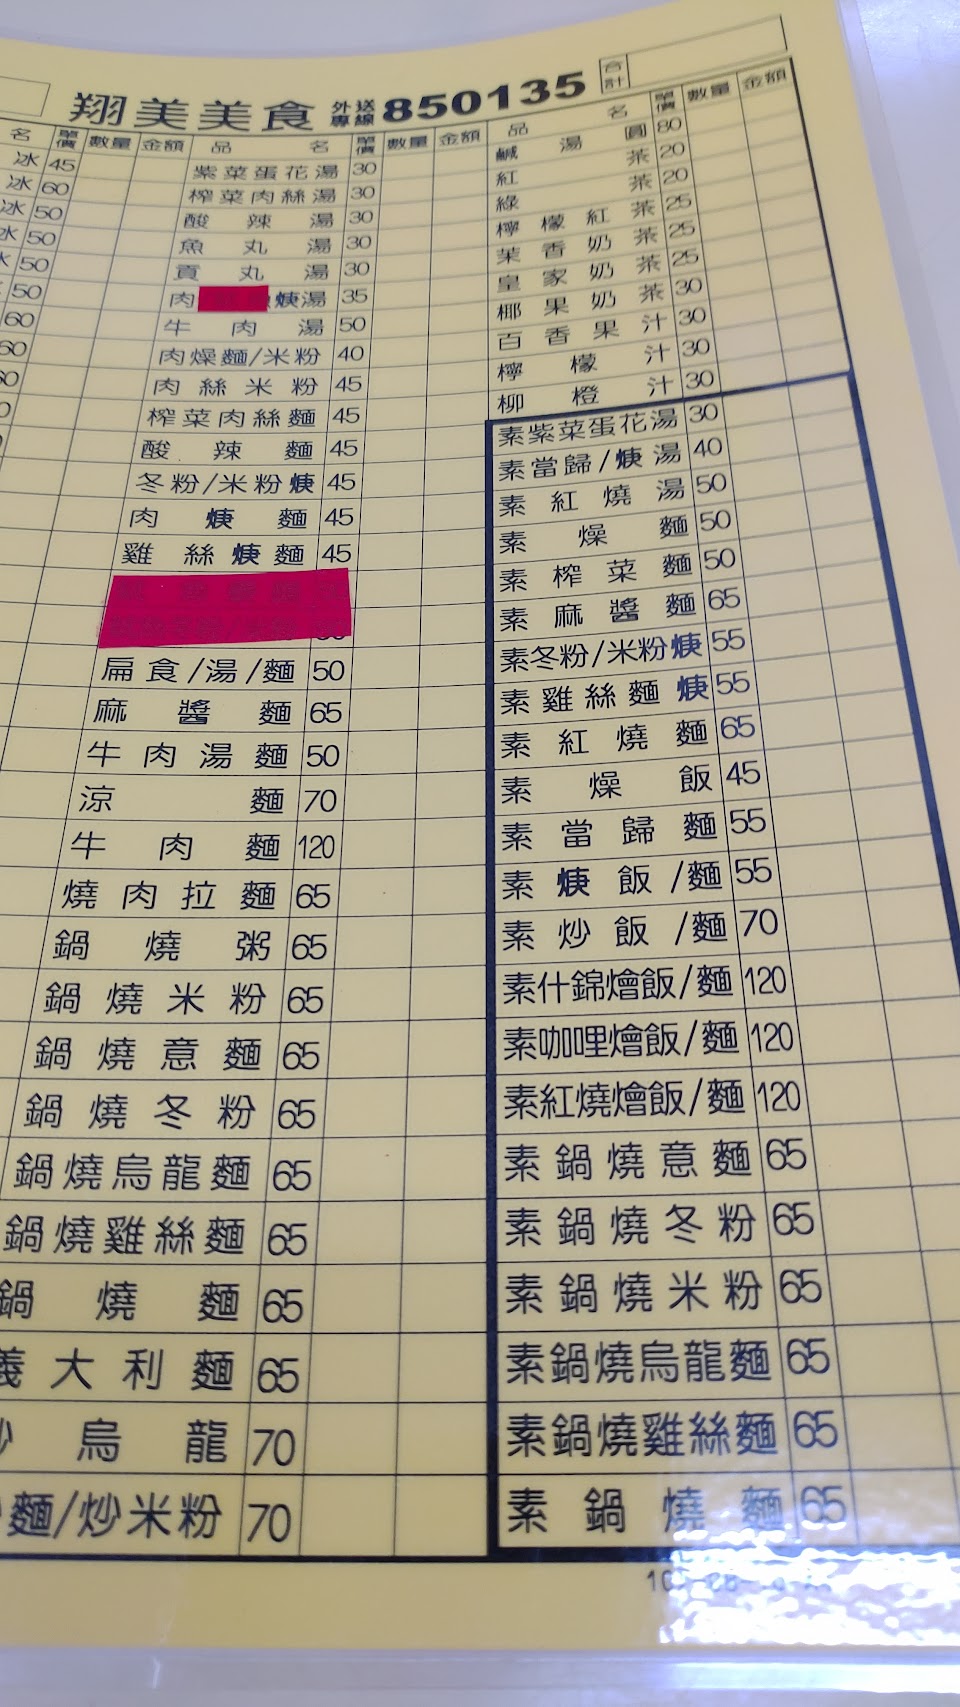 翔美美食 外送專線 850135 合計
名 單價 數量 金額 品名 單價 數量 金額 品名 單價 數量 金額
冰 45
冰 60
冰 50
冰 50
50
50
60
60
60
紫菜蛋花湯 30
榨菜肉絲湯 30
酸辣湯 30
魚丸湯 30
貢丸湯 30
肉 焿湯 35
牛肉湯 50
肉燥麵/米粉 40
肉絲米粉 45
榨菜肉絲麵 45
酸辣麵 45
冬粉/米粉焿 45
肉焿麵 45
雞絲焿麵 45
扁食/湯/麵 50
麻醬麵 65
牛肉湯麵 50
涼麵 70
牛肉麵 120
燒肉拉麵 65
鍋燒粥 65
鍋燒米粉 65
鍋燒意麵 65
鍋燒冬粉 65
鍋燒烏龍麵 65
鍋燒雞絲麵 65
鍋燒麵 65
義大利麵 65
炒烏龍 70
麵/炒米粉 70
鹹湯圓 80
紅茶 20
綠茶 20
檸檬紅茶 25
茉香奶茶 25
皇家奶茶 25
椰果奶茶 30
百香果汁 30
檸檬汁 30
柳橙汁 30
素紫菜蛋花湯 30
素當歸/焿湯 40
素紅燒湯 50
素燥麵 50
素榨菜麵 50
素麻醬麵 65
素冬粉/米粉焿 55
素雞絲麵焿 55
素紅燒麵 65
素燥飯 45
素當歸麵 55
素焿飯/麵 55
素炒飯/麵 70
素什錦燴飯/麵 120
素咖哩燴飯/麵 120
素紅燒燴飯/麵 120
素鍋燒意麵 65
素鍋燒冬粉 65
素鍋燒米粉 65
素鍋燒烏龍麵 65
素鍋燒雞絲麵 65
素鍋燒麵 65